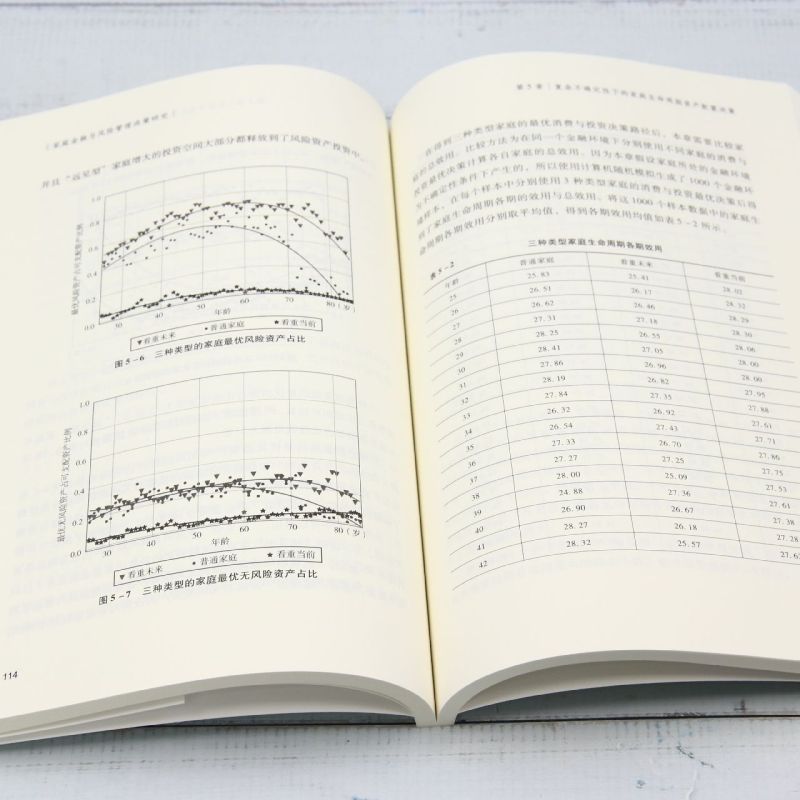 ｜家庭金融与风险管理决策研究｜
并且“远见型”家庭增大的投资空间大部分都释放到了风险资产投资中。
最优风险资产占可支配资产比例
1.0
0.8
0.6
0.4
0.2
0.0
30 40 50 60 70 80（岁）
年龄
▼看重未来 •普通家庭 ★看重当前
图5-6 三种类型的家庭最优风险资产占比
最优无风险资产占可支配资产比例
1.0
0.8
0.6
0.4
0.2
0.0
30 40 50 60 70 80（岁）
年龄
▼看重未来 •普通家庭 ★看重当前
图5-7 三种类型的家庭最优无风险资产占比
114
第5章｜复杂不确定性下的家庭生命周期资产配置决策
在得到三种类型家庭的最优消费与投资决策路径后，本章需要比较家
庭的总效用。比较方法为在同一个金融环境下分别使用不同家庭的消费与
投资最优决策计算各自家庭的总效用。因为本章假设家庭所处的金融环境
为不确定性条件下产生的，所以使用计算机随机模拟生成了1000个金融环
境样本，在每个样本中分别使用3种类型家庭的消费与投资最优决策后得
到了家庭生命周期各期的效用与总效用。将这1000个样本数据中的家庭生
命周期各期效用分别取平均值，得到各期效用均值如表5-2所示。
表5-2 三种类型家庭生命周期各期效用
年龄 普通家庭 看重未来 看重当前
25 25.83 25.41 28.02
26 26.51 26.17 28.32
27 26.62 26.46 28.29
28 27.31 27.18 28.30
29 28.25 26.55 28.08
30 28.41 27.05 28.06
31 27.86 26.96 28.00
32 28.19 26.82 27.95
33 27.84 27.35 27.88
34 26.32 26.92 27.61
35 26.54 27.43 27.71
36 27.33 26.70 27.86
37 27.27 27.25 27.75
38 28.00 25.09 27.53
39 24.88 27.36 27.61
40 26.90 26.67 27.38
41 28.27 26.18 27.28
42 28.32 25.57